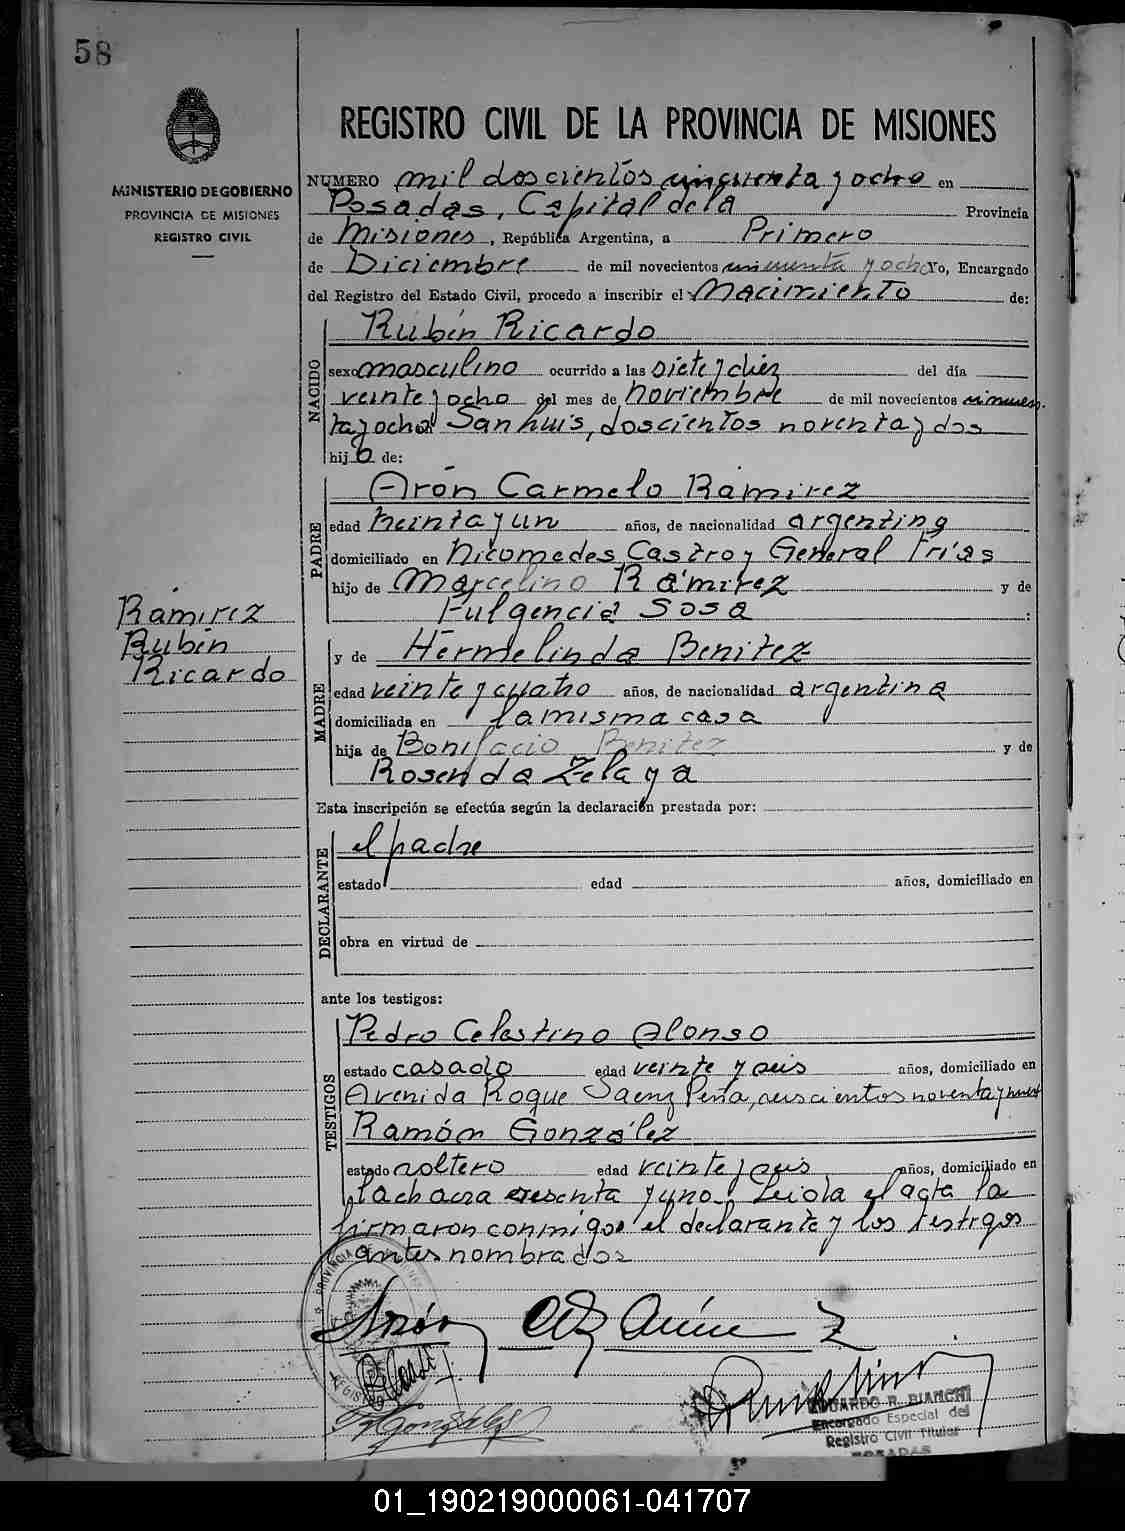 58
MINISTERIO DE GOBIERNO
PROVINCIA DE MISIONES
REGISTRO CIVIL
REGISTRO CIVIL DE LA PROVINCIA DE MISIONES
NUMERO mil doscientos cincuenta y ocho en
Posadas, Capital de la Provincia
de Misiones, República Argentina, a Primero
de Diciembre de mil novecientos cincuenta y ocho Yo, Encargado
del Registro del Estado Civil, procedo a inscribir el Nacimiento de:
NACIDO
Rubén Ricardo
sexo masculino ocurrido a las siete y diez del día
veinte y ocho del mes de noviembre de mil novecientos cincuen-
ta y ocho San Luis, doscientos noventa y dos
hijo de:
PADRE
Arón Carmelo Ramirez
edad treinta y un años, de nacionalidad argentina
domiciliado en Nicomedes Castro y General Frías
hijo de Marcelino Ramirez y de
Fulgencia Sosa :
Ramirez
Rubén
Ricardo
MADRE
y de Hermelinda Benitez
edad veinte y cuatro años, de nacionalidad argentina
domiciliada en la misma casa
hija de Bonifacio Benitez y de
Rosenda Zelaya
Esta inscripción se efectúa según la declaración prestada por:
DECLARANTE
el padre
estado edad años, domiciliado en
obra en virtud de
ante los testigos:
TESTIGOS
Pedro Celestino Alonso
estado casado edad veinte y seis años, domiciliado en
Avenida Roque Saenz Peña, seiscientos noventa y nueve
Ramón González
estado soltero edad veinte y seis años, domiciliado en
la chacra sesenta y uno. Leida el acta la
firmaron conmigo el declarante y los testigos
antes nombrados
R González
EDUARDO R. BIANCHI
Encargado Especial del
Registro Civil Titular
POSADAS
01_190219000061-041707